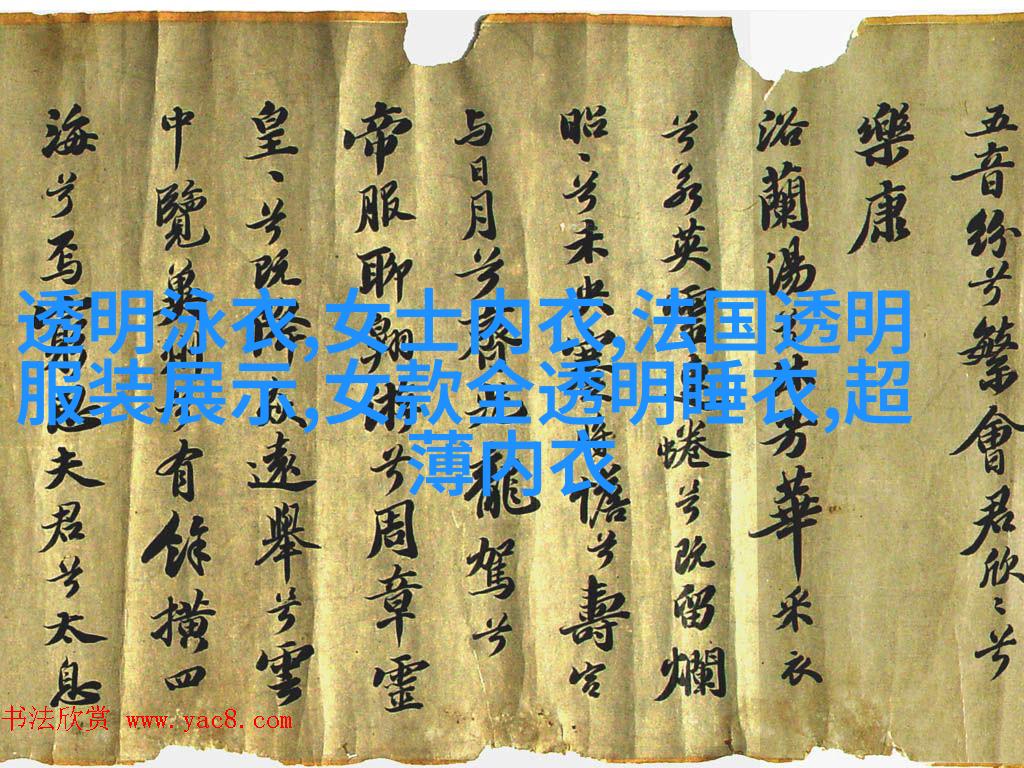 五音紛兮繁會君欣〻兮
樂康
浴蘭湯兮沐芳華采衣
兮若英靈連蜷兮既留爛
昭〻兮未央蹇將憺兮壽宮
与日月兮齊光龍駕兮
帝服聊翱兮周章靈
皇〻兮既降遠舉兮雲
中覽冀州兮有餘橫四
海兮焉窮思夫君兮太息
透明泳衣,女士内衣,法国透明
服装展示,女款全透明睡衣,超
薄内衣
书法欣赏 www.yac8.com